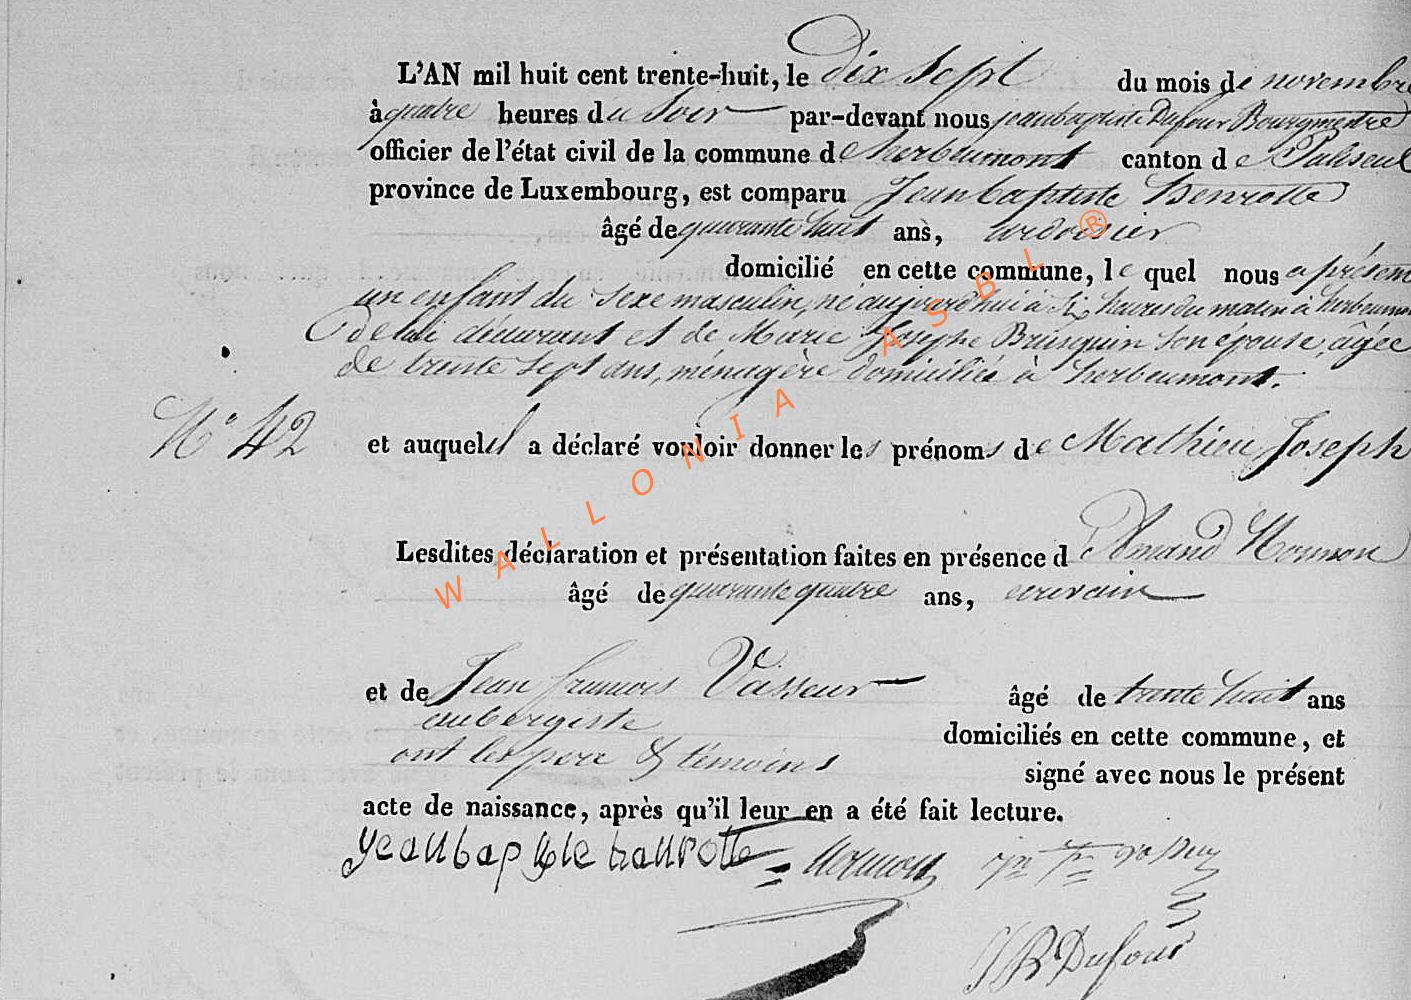 L'AN mil huit cent trente-huit, le dix sept du mois de novembre
à quatre heures du Soir par-devant nous jeanbaptiste Dufour Bourgmestre
officier de l'état civil de la commune de herbeumont canton de Paliseul
province de Luxembourg, est comparu Jeanbaptiste Henrotte
âgé de quarante huit ans, ardoisier
domicilié en cette commune, le quel nous a présen
un enfant du sexe masculin, né aujourdhui à Six heures du matin à herbeumon
de lui déclarant et de Marie Josephe Bringuin son épouse, âgée
de trente sept ans, ménagère domiciliée à herbeumont.
N° 42
et auquel il a déclaré vouloir donner les prénoms de Mathieu Joseph
Lesdites déclaration et présentation faites en présence d Amand Mormon
âgé de quarante quatre ans, ecrivain
et de Jean francois Vasseur âgé de trente huit ans
aubergiste
domiciliés en cette commune, et
ont les pere & témoins
signé avec nous le présent
acte de naissance, après qu'il leur en a été fait lecture.
Jeanbaptiste hanrotte
JB Dufour
WALLONIA ASBL ®